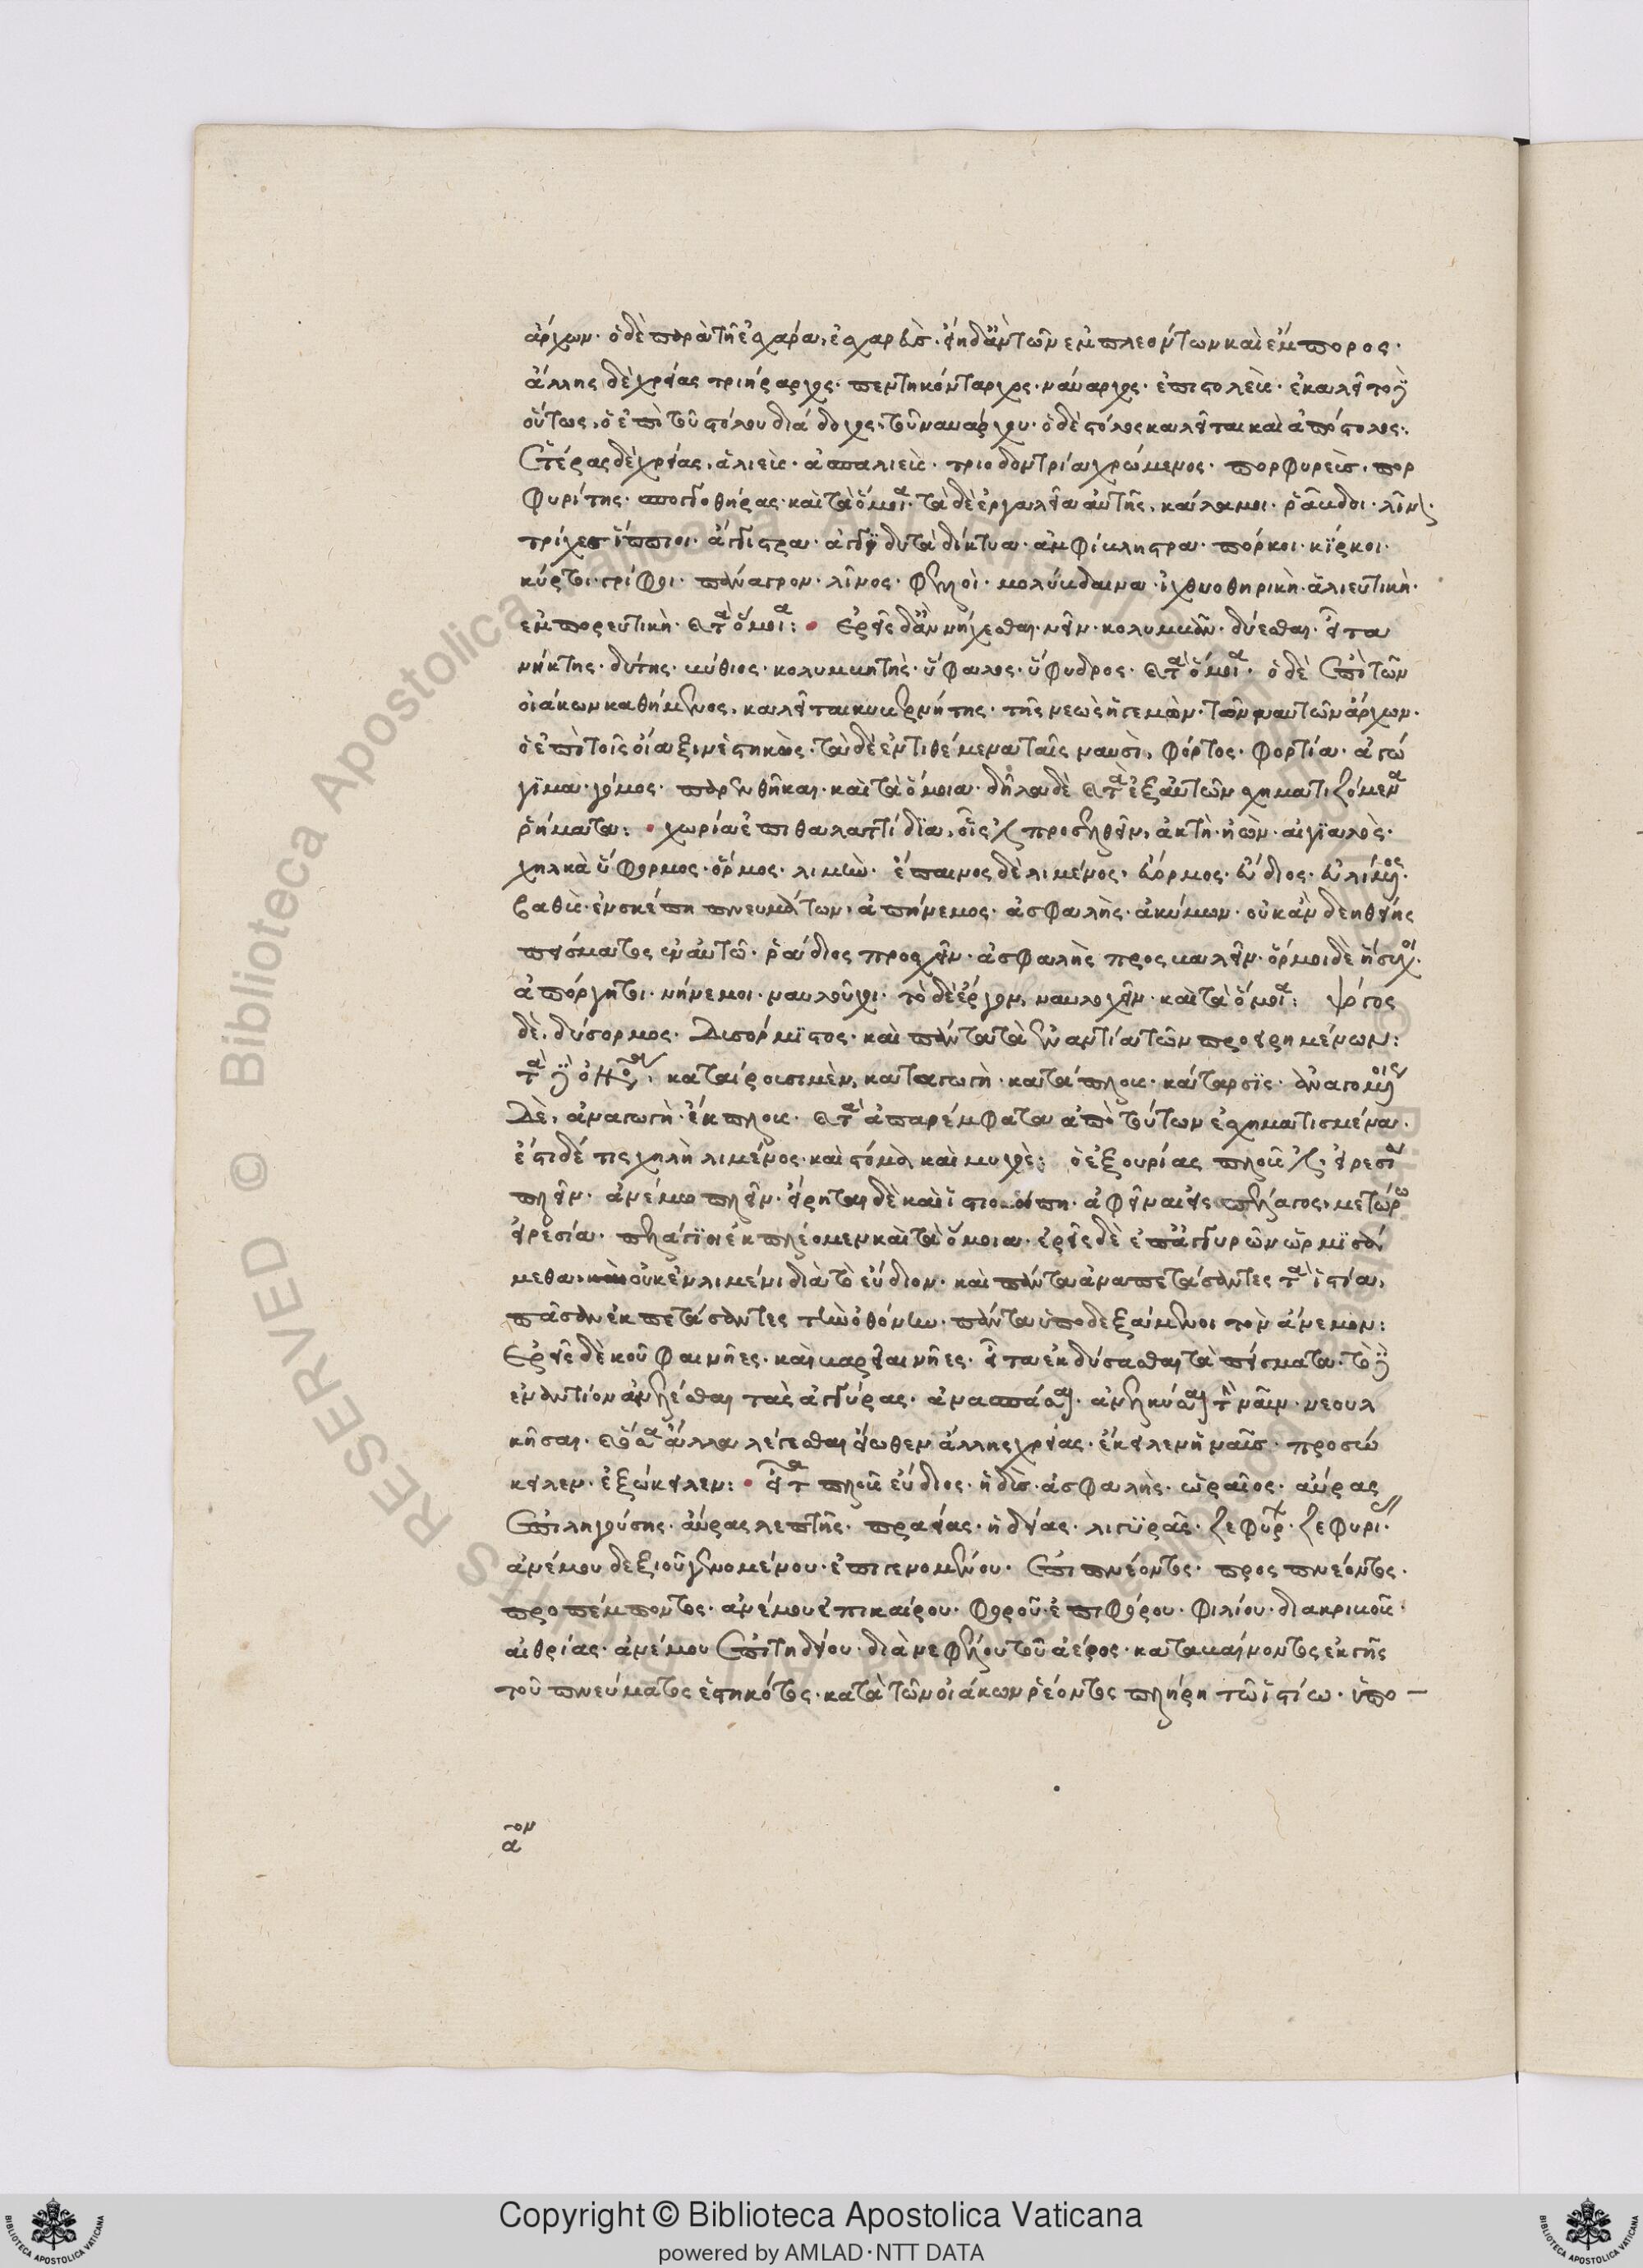 ἄρχων· ὁ δὲ παρὰ τῇ ἐσχάρα, ἐσχαρεὺς· εἴη δ' ἂν τῶν ἐμπλεόντων καὶ ἔμπορος·
ἄλλης δὲ χρείας τριήραρχος· πεντηκόνταρχος· ναύαρχος· ἐπιστολεὺς· ἐκαλεῖτο γὰρ
οὕτως, ὁ ἐπὶ τοῦ στόλου διάδοχος, τοῦ ναυάρχου· ὁ δὲ στόλος καλεῖται καὶ ἀπόστολος·
ἑτέρας δὲ χρείας, ἁλιεὺς· ἀσπαλιεὺς· τριόδοντρία χρώμενος· πορφυρεὺς· πορ
φυρίτης· σπογγοθήρας· καὶ τὰ ὅμοια· τὰ δὲ ἐργαλεῖα αὐτῆς, κάλαμοι· ῥάβδοι·
τρίχες ἵππιοι· ἄγκιστρα· δίκτυα· ἀμφίβληστρα· πόρκοι· κίρκοι·
κύρτοι· γρίφοι· πάναγρον· λίνος· φελλοὶ· μολύβδαινα· ἰχθυοθηρικὴ· ἁλιευτικὴ·
ἐμπορευτικὴ· καὶ τὰ ὅμοια: ἐρεῖς δ' ἂν νήχεσθαι· νεῖν· κολυμβᾶν· δύεσθαι· εἶτα
νήκτης· δύτης· βύθιος· κολυμβητὴς· ὕφαλος· ὕφυδρος· καὶ τὰ ὅμοια· ὁ δὲ ἐπὶ τῶν
οἰάκων καθήμενος, καλεῖται κυβερνήτης· τῆς νεὼς ἡγεμὼν· τῶν ναυτῶν ἄρχων·
ὁ ἐπὶ τοῖς οἴαξιν ἑστηκὼς· τὰ δὲ ἐντιθέμενα ταῖς ναυσὶ, φόρτος· φορτία· ἀγώ
γιμα· γόμος· παρενθῆκαι· καὶ τὰ ὅμοια· δῆλα δὲ καὶ τὰ ἐξ αὐτῶν σχηματιζόμενα
ῥήματα: χωρία ἐπιθαλαττίδια, οἷς ἔστι προσελθεῖν, ἀκτὴ· ἠϊὼν· αἰγιαλὸς·
χηλκὰ ὕφορμος· ὅρμος· λιμὴν· ἔπαινος δὲ λιμένος, εὔορμος· εὔδιος· εὐλίμενος·
βαθὺς· ἐν σκέπῃ πνευμάτων, ἀπήνεμος· ἀσφαλὴς· ἀκύμων· οὐκ ἂν δεηθείης
πείσματος ἐν αὐτῶ· ῥάδιος προσχεῖν· ἀσφαλὴς προσβαλεῖν· ὅρμοι δὲ ἥσυχοι·
ἀπόργητοι· νήνεμοι· ναύλοῦχοι· τὸ δὲ ἔργον, ναυλοχεῖν· καὶ τὰ ὅμοια: ψόγος
δὲ, δύσορμος· δυσόρμιστος· καὶ πάντα τὰ ἐναντία τῶν προειρημένων:
καταίρουσι μὲν, καταγωγὴ· κατάπλους· κάταρσις· ἀναγομένοις
δὲ, ἀναγωγὴ· ἔκπλους· καὶ τὰ ἀπαρέμφατα ἀπὸ τούτων ἐσχηματισμένα·
ἔστι δέ τις χηλὴ λιμένος· καὶ στόμα καὶ μυχὸς: ὁ ἐξ οὐρίας πλοῦς ἔστι· εἰρεσία
πλεῖν· ἀνέμω πλεῖν· εἴρηται δὲ καὶ ἱστίο κώπη· ἀφεῖναι εἰς πέλαγος, μετέωρα
εἰρεσία· πελάγιοι ἐκπλέομεν καὶ τὰ ὅμοια· ἐρεῖς δὲ ἐπ' ἀγκυρῶν ὡρμισά
μεθα, οὐκ ἐν λιμένι διὰ τὸ εὔδιον· καὶ πάντα ἀναπετάσαντες τὰ ἱστία,
πᾶσαν ἐκπετάσαντες τὴν ὀθόνην· πάντα ὑποδεξάμενοι τὸν ἄνεμον:
ἐρεῖς δὲ κοῦφαι νῆες· καὶ βαρεῖαι νῆες· εἶτα ἐκλύσασθαι τὰ πείσματα· τὸ γὰρ
ἐναντίον ἀνελέσθαι τὰς ἀγκύρας· ἀνασπάσαι· ἀνελκύσαι τὴν ναῦν· νεουλ
κῆσαι· καὶ ὅσα ἄλλα λέγεσθαι εἴωθεν ἄλλης χρείας· ἔκειλεν ἡ ναῦς· προσώ
κειλεν· ἐξώκειλεν: εἶτα πλοῦς εὔδιος· ἡδὺς· ἀσφαλὴς· ὡραῖος· αὔρας
ἐπιληγούσης· αὔρας λεπτῆς· πραείας· ἡδείας· λιγυρᾶς· ζεφύρου· ζεφυρι
ἀνέμου δεξιοῦ γενομένου· ἐπιγενομένου· ἐπιπνέοντος· προσπνέοντος·
προπέμποντος· ἀνέμου ἐπικαίρου· φοροῦ· ἐπιφόρου· φιλίου· διακρικοῦ·
αἰθρίας· ἀνέμου ἐπιτηδείου· διὰ νεφελίου τοῦ ἀέρος· καταβαίνοντος ἐκ γῆς
τοῦ πνεύματος ἑστηκότος· κατὰ τῶν οἰάκων ῥέοντος πλήρη τῶ ἱστίω· ὑπο –
α<sup>ον</sup>
Copyright © Biblioteca Apostolica Vaticana
powered by AMLAD·NTT DATA